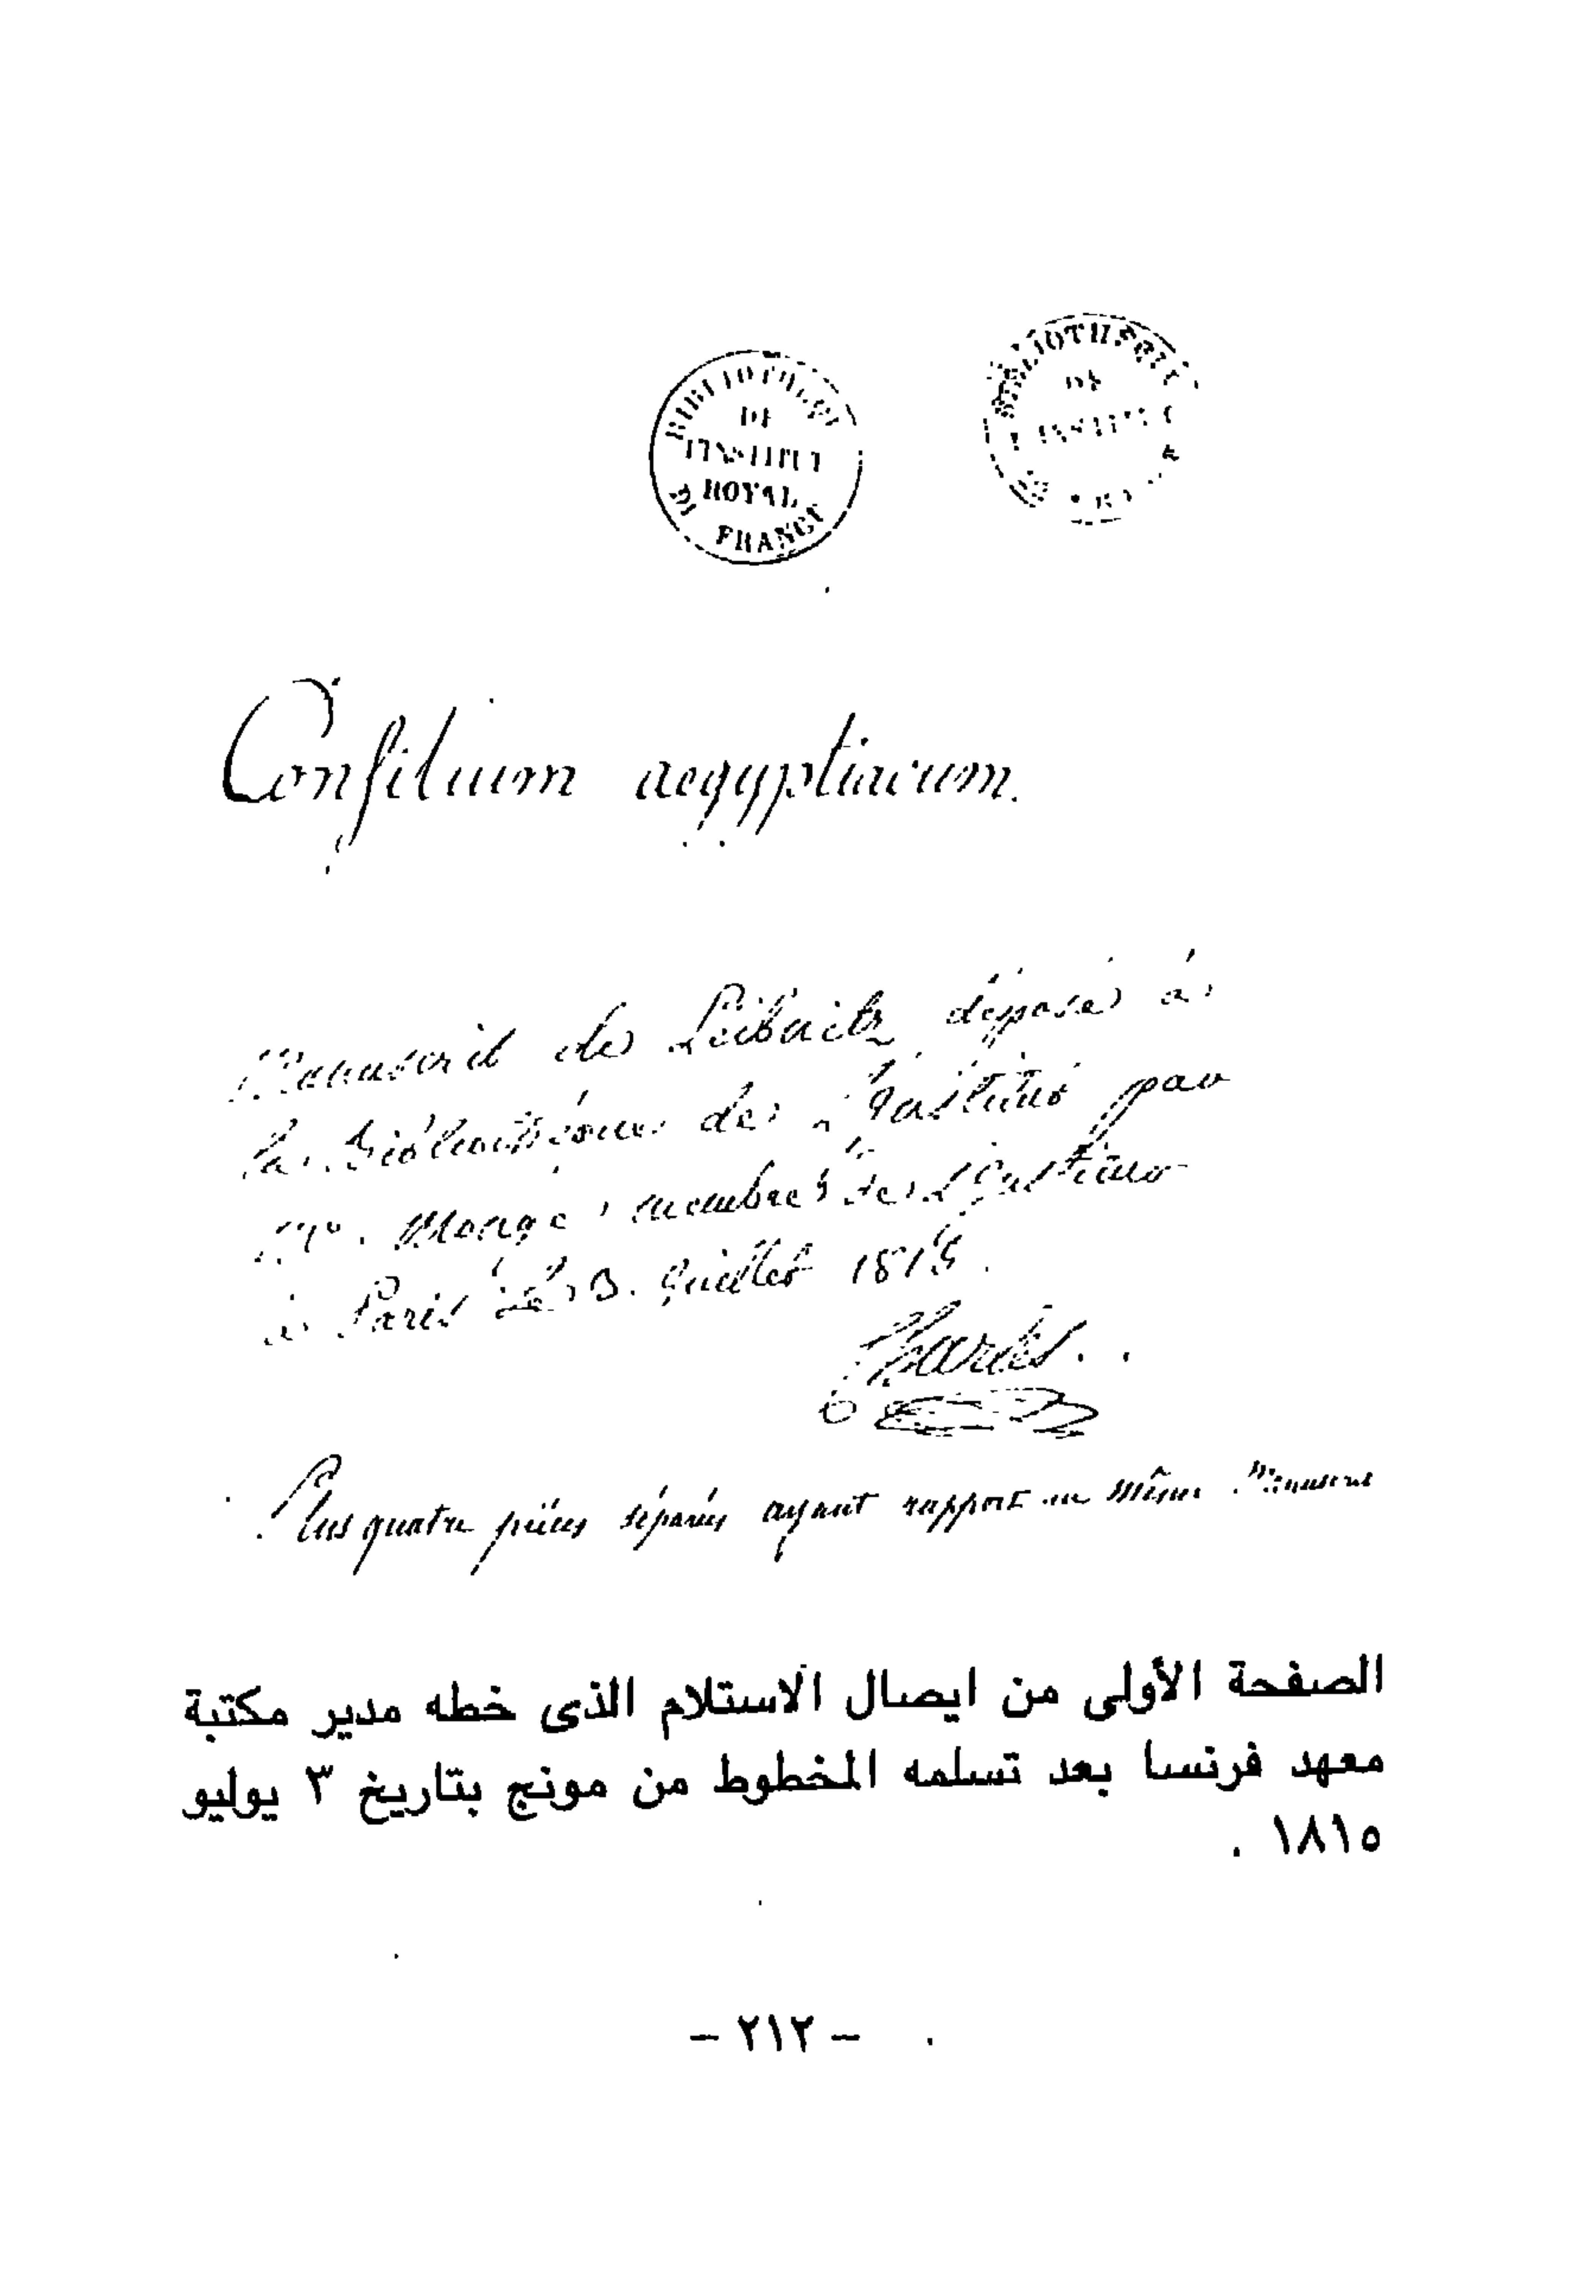 BIBLIOTHEQUE
DE
L'INSTITUT
ROYAL
DE FRANCE
BIBLIOTHEQUE
DE
L'INSTITUT
Consilium aegyptiacum.
Manuscrit de Leibnitz déposé à
la Bibliothèque de L'Institut par
Mr. Monge, membre de L'Institut
à Paris le 3. Juillet 1815.
Charles
Plus quatre pièces séparées ayant rapport au même Manuscrit
الصفحة الأولى من ايصال الاستلام الذى خطه مدير مكتبة
معهد فرنسا بعد تسلمه المخطوط من مونج بتاريخ ٣ يوليو
١٨١٥ .
– ٢١٢ –